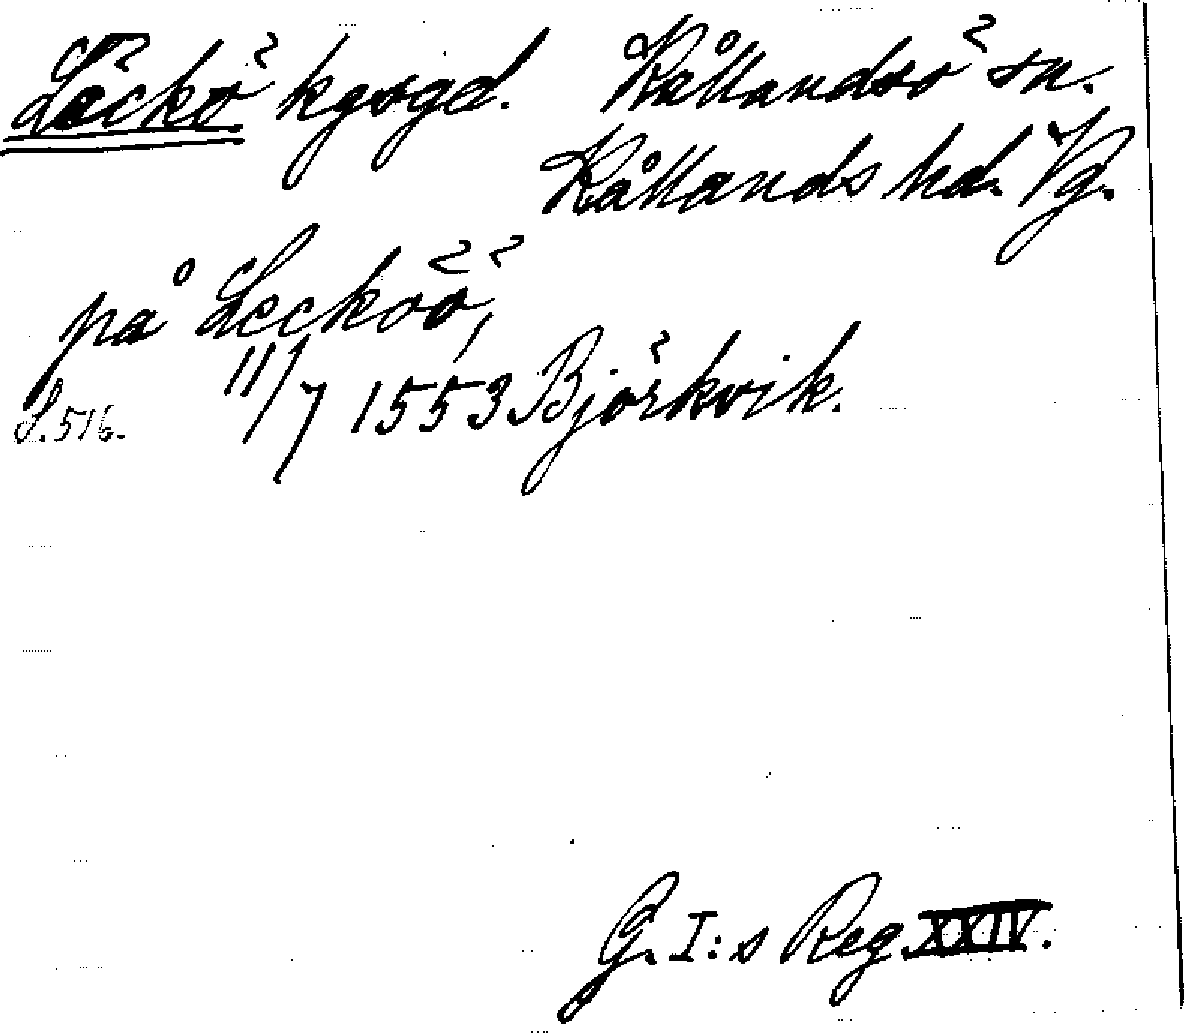 Läckö kgsgd. Kållandsö sn.
Kållands hd. Vg.
på Leckoö,
S. 516. 11/7 1553 Björkvik.
G. I:s Reg. XXIV.